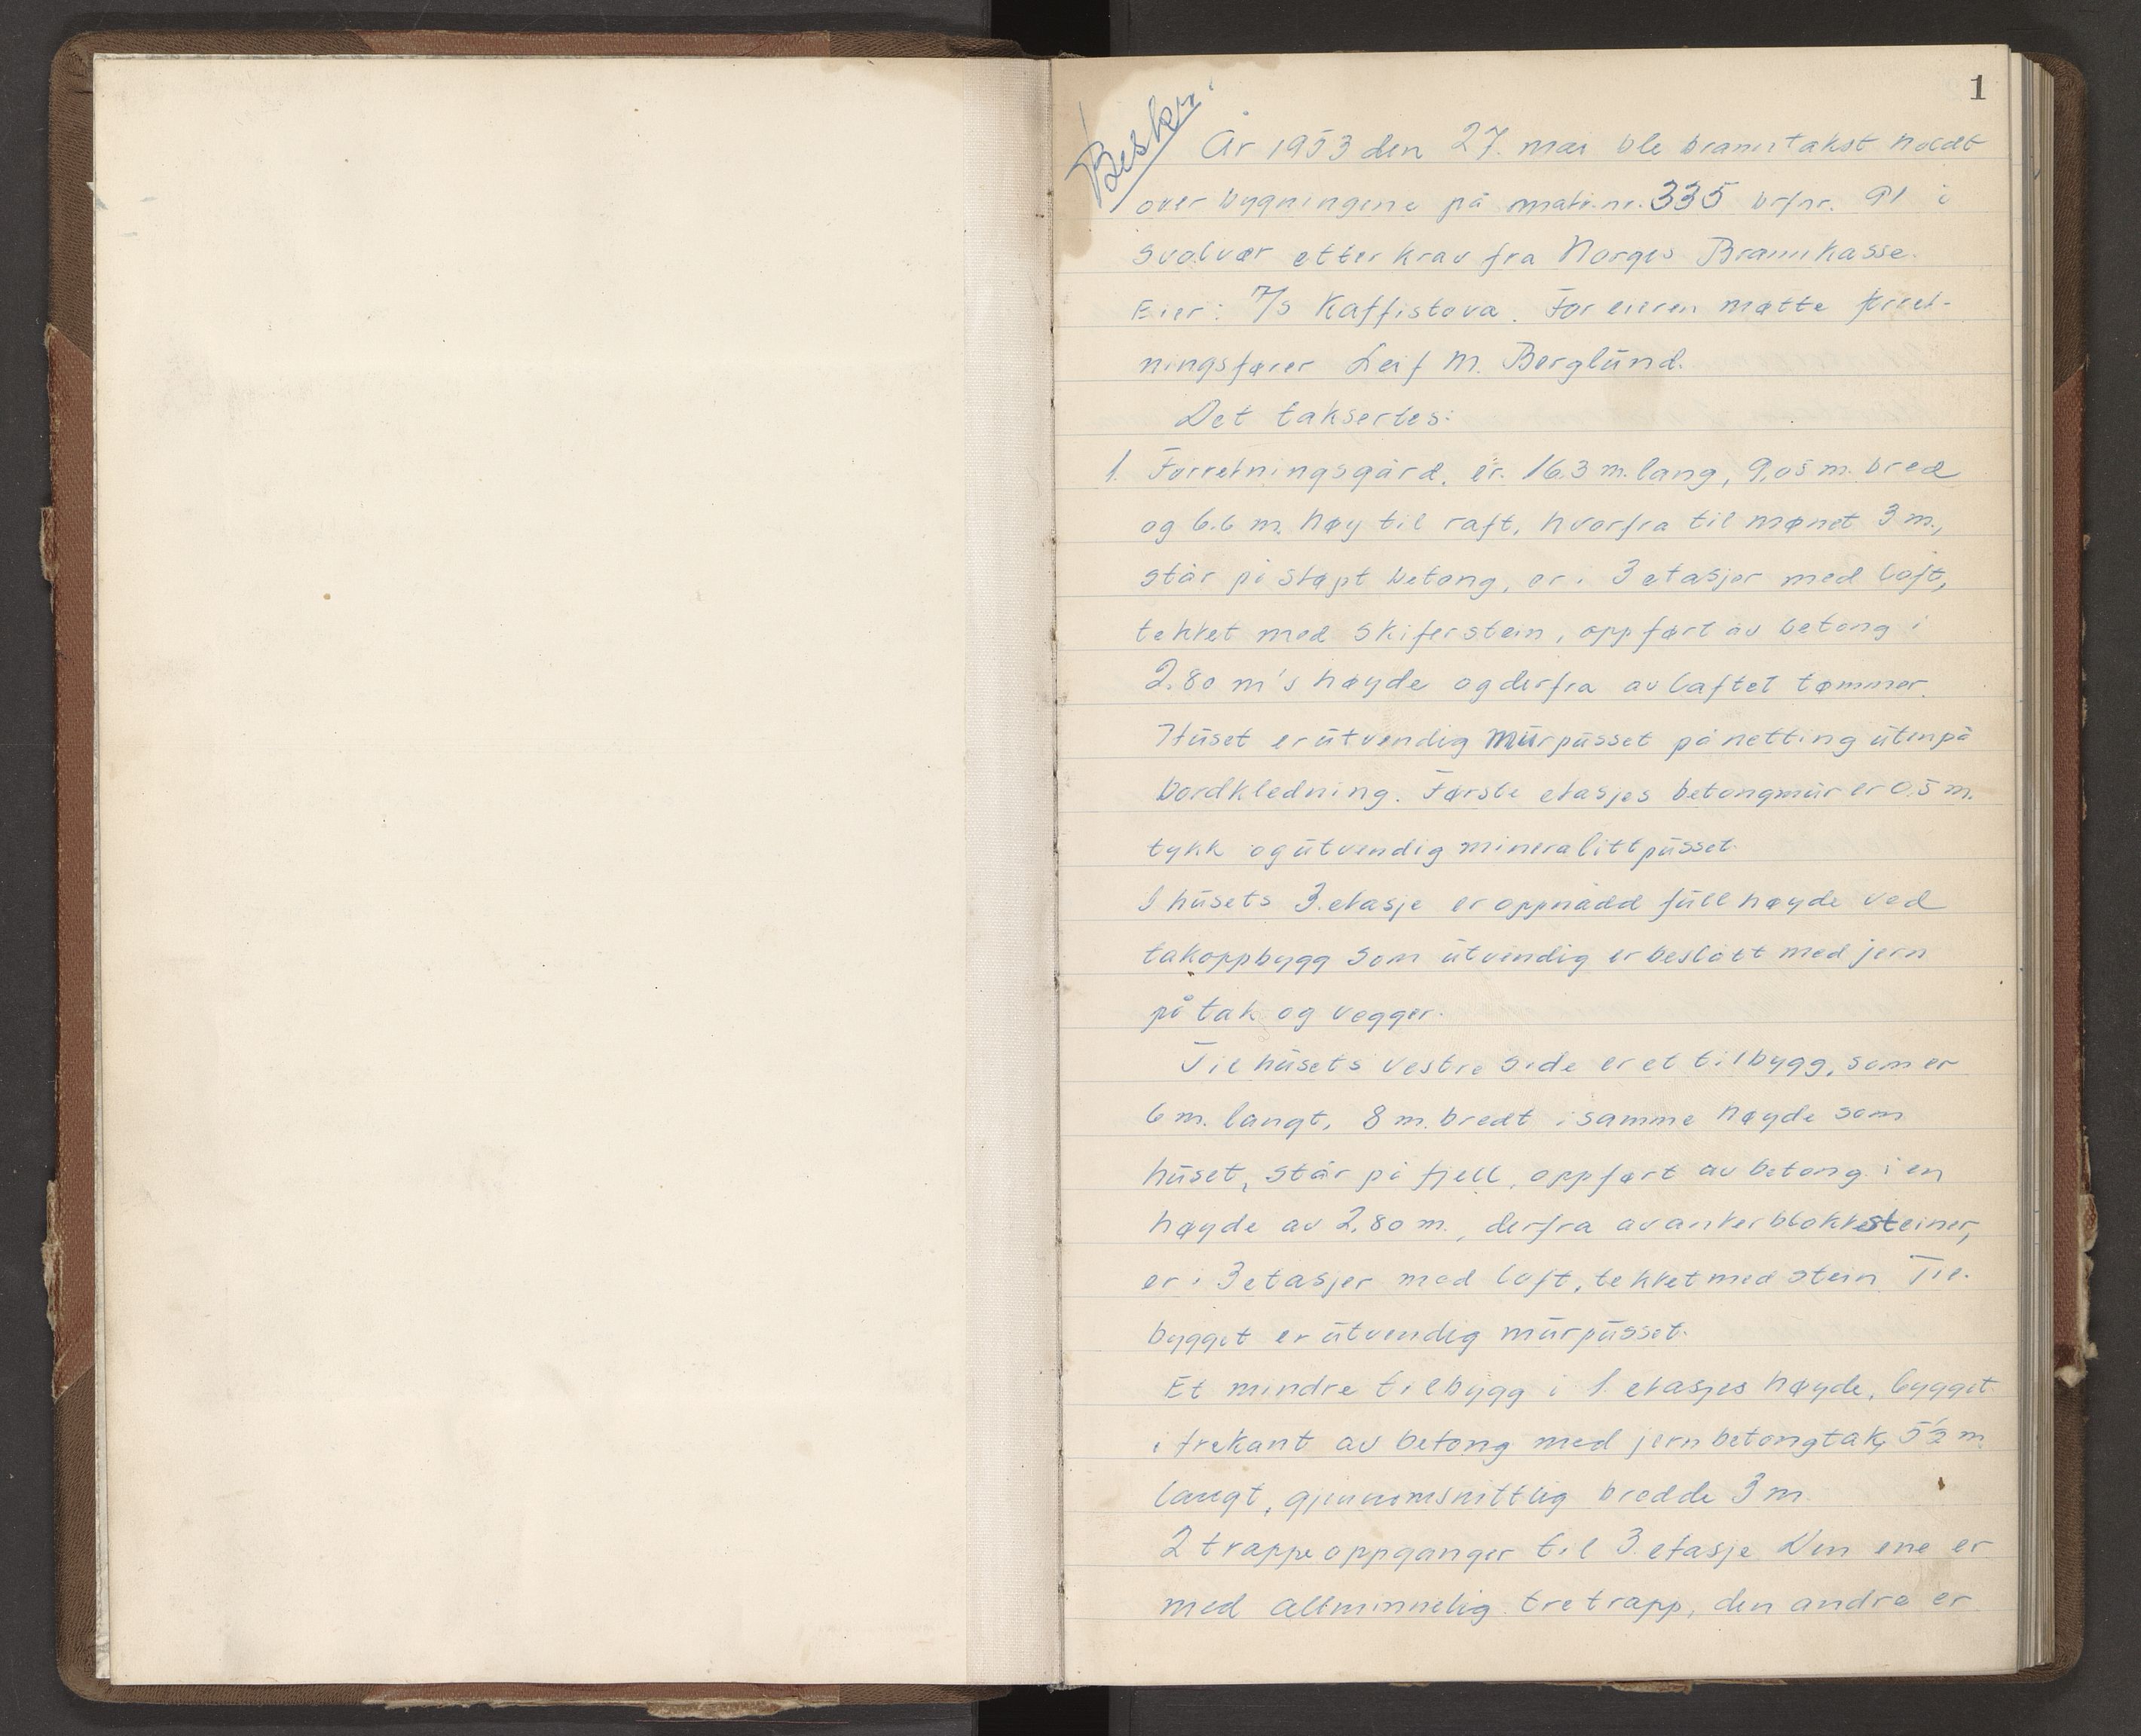 1
Beskr.
År 1953 den 27. mai ble branntakst holdt
over bygningene på matr.nr. 335 br/nr. 91 i
Svolvær etter krav fra Norges Brannkasse.
Eier: A/S Kaffistova. For eieren møtte forret-
ningsfører Leif M. Berglund.
Det taksertes:
1. Forretningsgård, er 16.3 m. lang, 9,05 m. bred
og 6.6 m. høy til raft, hvorfra til mønet 3 m.,
står på støpt betong, er i 3 etasjer med loft,
tekket med skiferstein, oppført av betong i
2.80 m's høyde og derfra av laftet tømmer.
Huset er utvendig murpusset på netting utenpå
bordkledning. Første etasjes betongmur er 0.5 m.
tykk og utvendig mineralittpusset.
I husets 3. etasje er oppnådd full høyde ved
takoppbygg som utvendig er beslått med jern
på tak og vegger.
Til husets vestre side er et tilbygg, som er
6 m. langt, 8 m. bredt i samme høyde som
huset, står på fjell, oppført av betong i en
høyde av 2.80 m., derfra av ankerblokksteiner,
er i 3 etasjer med loft, tekket med stein. Til-
bygget er utvendig murpusset.
Et mindre tilbygg i 1. etasjes høyde, bygget
i trekant av betong med jernbetongtak, 5½ m.
langt, gjennomsnittlig bredde 3 m.
2 trappeoppganger til 3. etasje. Den ene er
med allminnelig tretrapp, den andre er